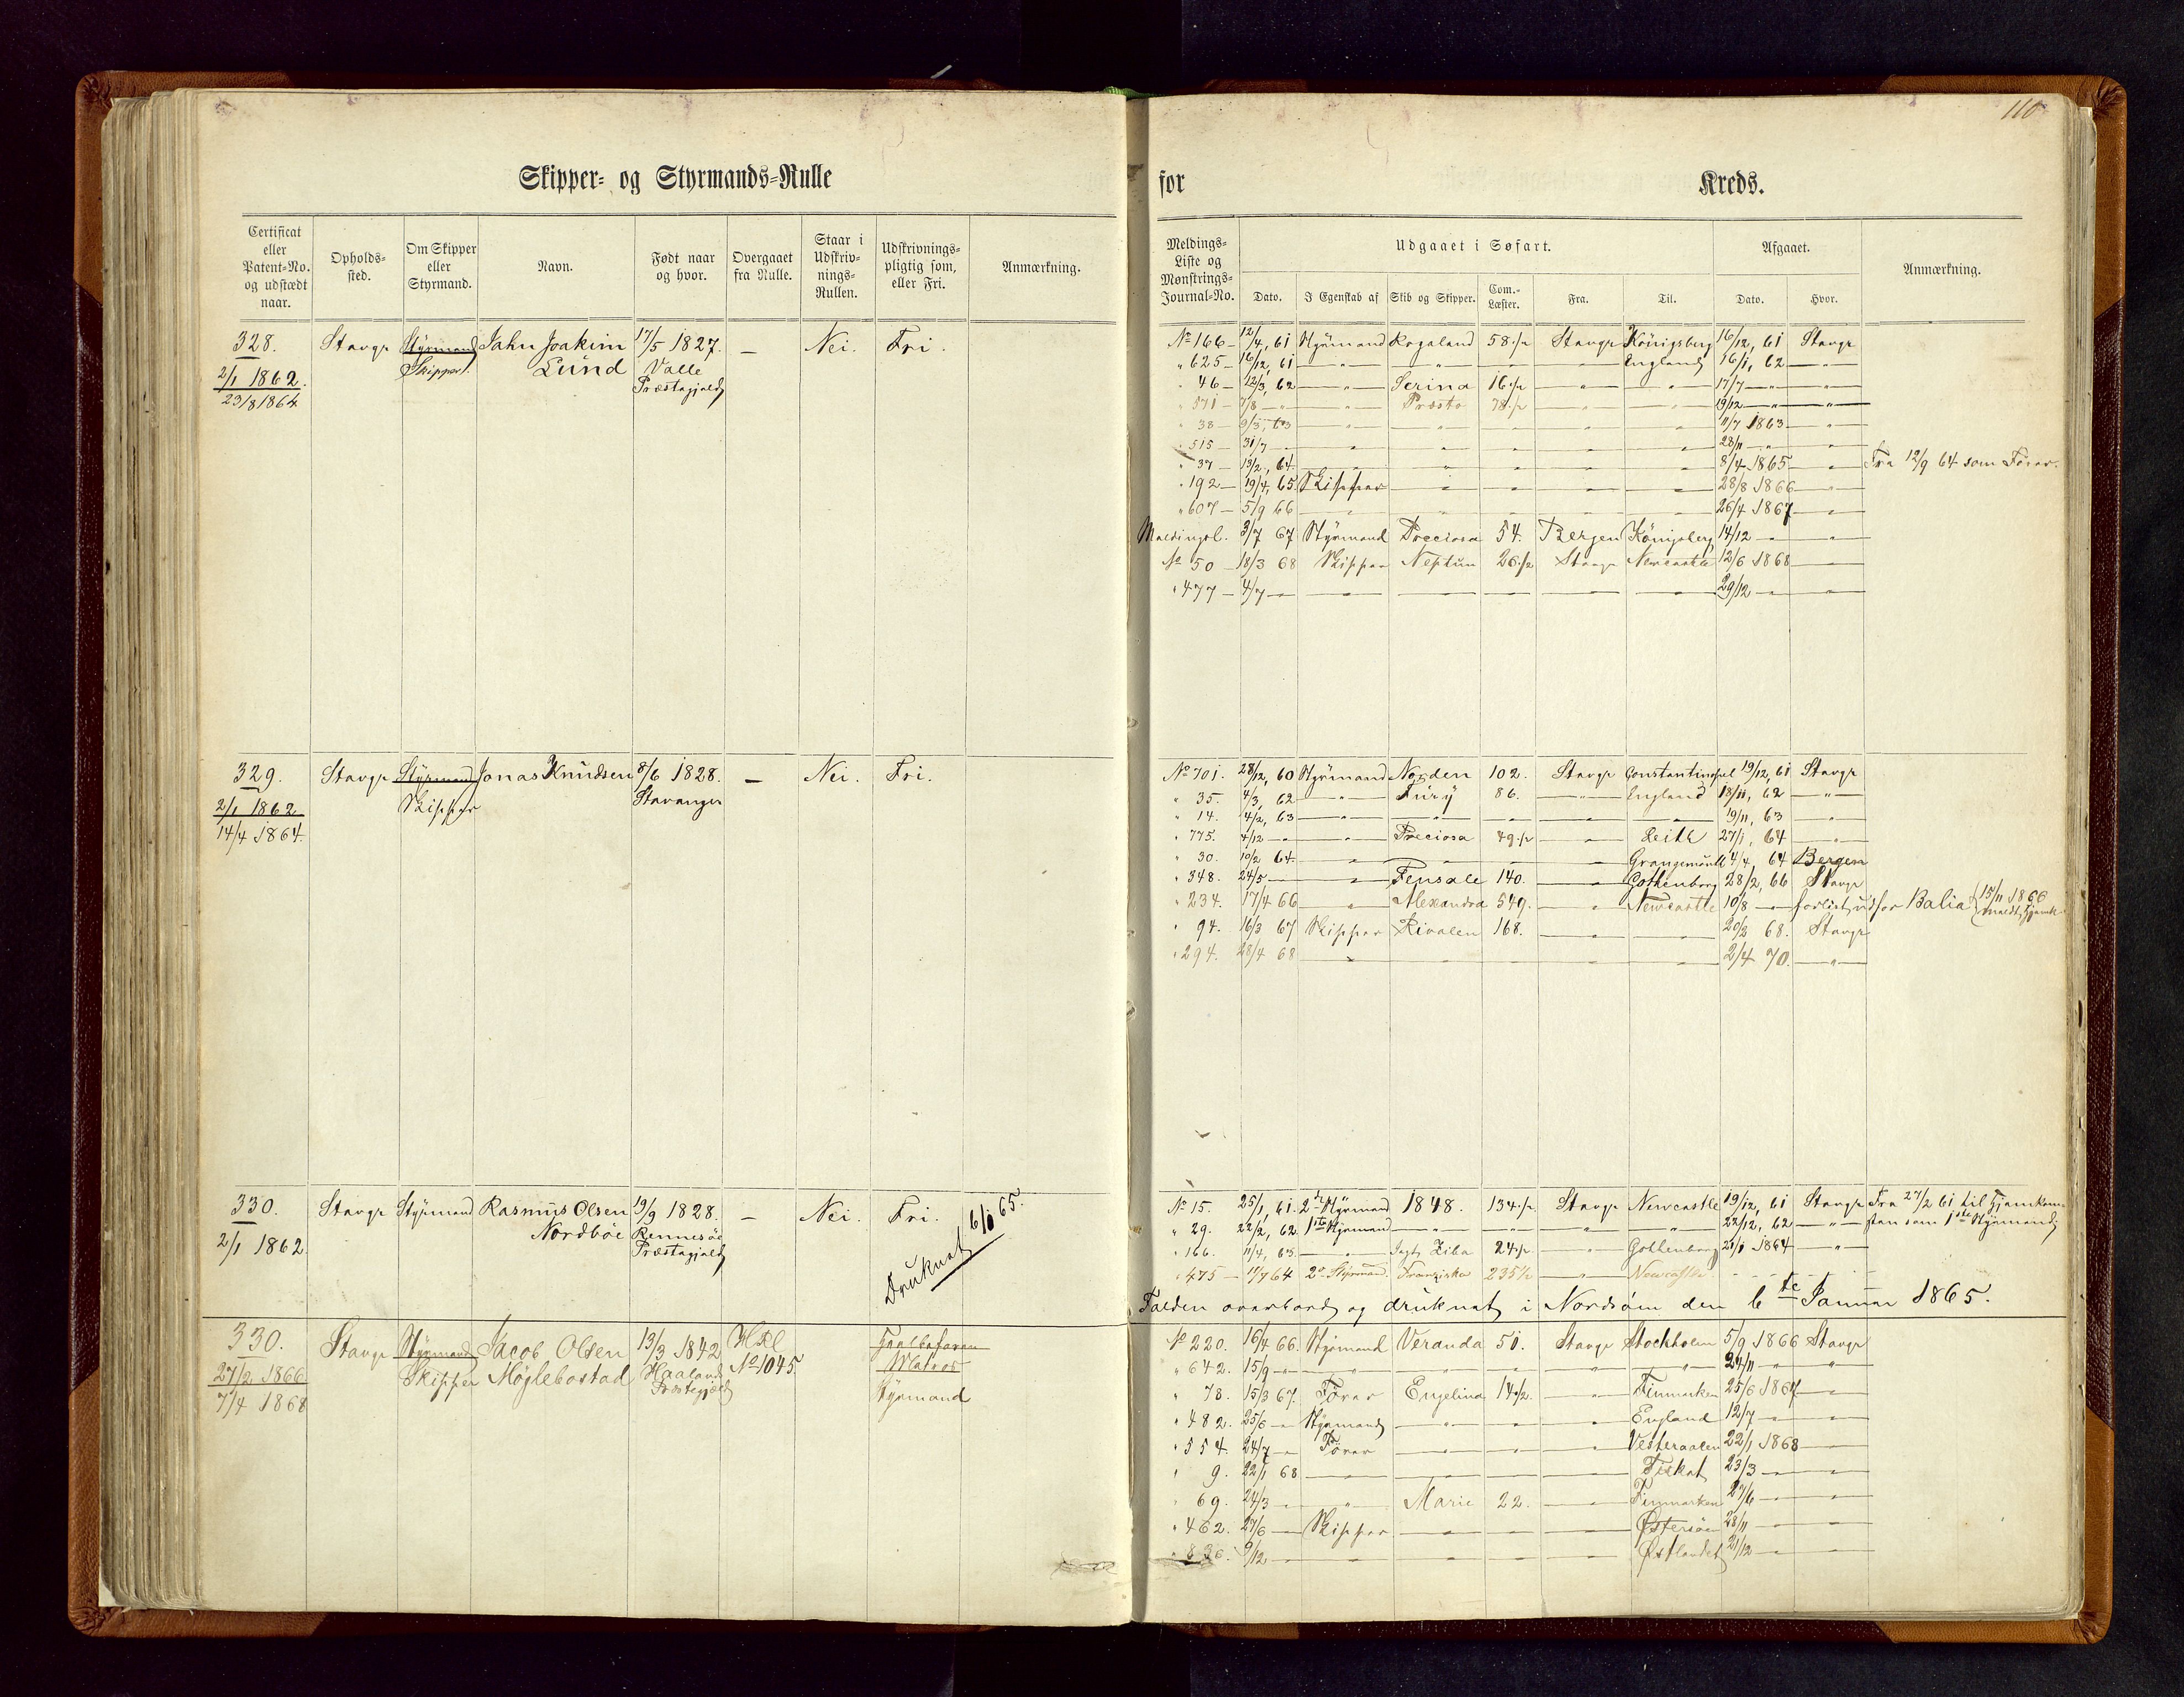 110
Skipper- og Styrmands-Rulle for Kreds.
Certificat eller Patent-No. og udstædt naar. Opholds-sted. Om Skipper eller Styrmand. Navn. Født naar og hvor. Overgaaet fra Rulle. Staar i Udskriv-nings-Rullen. Udskrivnings-pligtig som, eller Fri. Anmærkning.
328. Stavgr Styrmand Jahn Joakim 17/5 1827. — Nei. Fri.
2/1 1862. Skipper. Lund Valle
23/8 1864 Præstegjæld
329. Stavgr Styrmand Jonas Knudsen 8/6 1828. — Nei. Fri.
2/1 1862 Skipper Stavanger
14/4 1864.
330. Stavgr Styrmand Rasmus Olsen 19/9 1828. — Nei. Fri. Druknet 6/1 65.
2/1 1862. Nordböe Rennesöe
Præstegjæld
330. Stavgr Styrmand Jacob Olsen 13/3 1842 Hskl
27/2 1866 Skipper Möglebostad Haalands No 1045 Matros
7/4 1868 Præstegjæld Styrmand
Meldings-Liste og Mønstrings-Journal-No. Udgaaet i Søfart. Afgaaet. Anmærkning.
Dato. I Egenskab af Skib og Skipper. Com.-Læster. Fra. Til. Dato. Hvor.
No 166 — 12/4, 61 Styrmand Rogaland 58 1/2 Stavgr Königsberg 16/12, 61 Stavgr
" 625 — 16/12, 61 — " — — " — — " — — " — England 16/1, 62 — " —
" 46 — 12/3, 62 — " — Serina 16 1/2 — " — — " — 17/7 — " — — " —
" 571 — 7/8 — " — — " — Præsto 78 1/2 — " — — " — 19/12 — " — — " —
" 38 — 9/3, 63 — " — — " — — " — — " — — " — 11/7 1863 — " —
" 515 — 31/7 — " — — " — — " — — " — — " — — " — 28/11 — " — — " —
" 37 — 13/2, 64 — " — — " — — " — — " — — " — 8/4 1865 — " — Fra 12/9 64 som Förer.
" 192 — 19/4, 65. Skipper — " — — " — — " — — " — 28/8 1866 — " —
" 607 — 5/9 66 — " — — " — — " — — " — — " — 26/4 1867 — " —
Meldingsl. 3/7 67 Styrmand Preciosa 54. Bergen Königsberg 14/12 — " — — " —
No 50 — 18/3 68 Skipper Neptun 26 1/2 Stavgr Newcastle 12/6 1868 — " —
" 477 — 4/7 — " — — " — — " — — " — — " — — " — 29/12 — " — — " —
No 701. 28/12, 60 Styrmand Norden 102. Stavgr Constantinopel 19/12, 61 Stavgr
" 35. 4/3, 62 — " — Fury 86. — " — England 18/11, 62 — " —
" 14. 4/2, 63 — " — — " — — " — — " — — " — 19/11, 63 — " —
" 775. 4/12 — " — — " — Preciosa 49 1/2 — " — Leith 27/1, 64 — " —
" 30. 10/2 64 — " — — " — — " — — " — Grangemouth 4/4, 64 Bergen
" 348. 24/5 — " — — " — Fensale 140. — " — Gothenborg 28/2, 66 Stavgr
" 234. 17/4 66 — " — Alexandra 549. — " — Newcastle 10/8 — " — forlist udfor Balia (15/11 1866 meldt hjemk.
" 94. 16/3 67 Skipper Rivalen 168. — " — — " — 20/2 68. Stavgr
" 294. 28/4 68 — " — — " — — " — — " — — " — 2/4 70. — " —
No 15. 25/1, 61. 2den Styrmand 1848. 134 1/2 Stavgr Newcastle 19/12, 61 Stavgr Fra 27/2 61 til hjemkom-
" 29. 22/2, 62. 1ste Styrmand — " — — " — — " — — " — 22/12, 62 — " — sten som 1ste Styrmand
" 166. 11/4, 63. — " — Jagt Ziba 24 1/2 — " — Gothenborg 21/1 1864 — " —
" 475 — 11/7 64 2n Styrmand Franziska 235 1/2 — " — Newcastle
Falden overbord og druknet i Nordsöen den 6te Januar 1865.
No 220. 16/4 66. Styrmand Veranda 51. Stavgr Stockholm 5/9 1866 Stavgr
" 642. 15/9 — " — — " — — " — — " — — " — — " — 24/11 — " — — " —
" 78. 15/3 67. Förer Engelina 14 1/2 — " — Finmarken 25/6 1867 — " —
" 482. 25/6 — " — Styrmand — " — — " — — " — England 12/7 — " — — " —
" 554. 24/7 — " — Förer — " — — " — — " — Vesteraalen 22/1 1868 — " —
" 9. 22/1 68 — " — — " — — " — — " — Fiskeri 23/3 — " — — " —
" 69. 24/3 — " — — " — Marie 22. — " — Finmarken 27/6 — " — — " —
" 462. 27/6 — " — Skipper — " — — " — — " — Østersöen 28/11 — " — — " —
" 836. 9/12 — " — — " — — " — — " — — " — Østlandet 21/12 — " — — " —